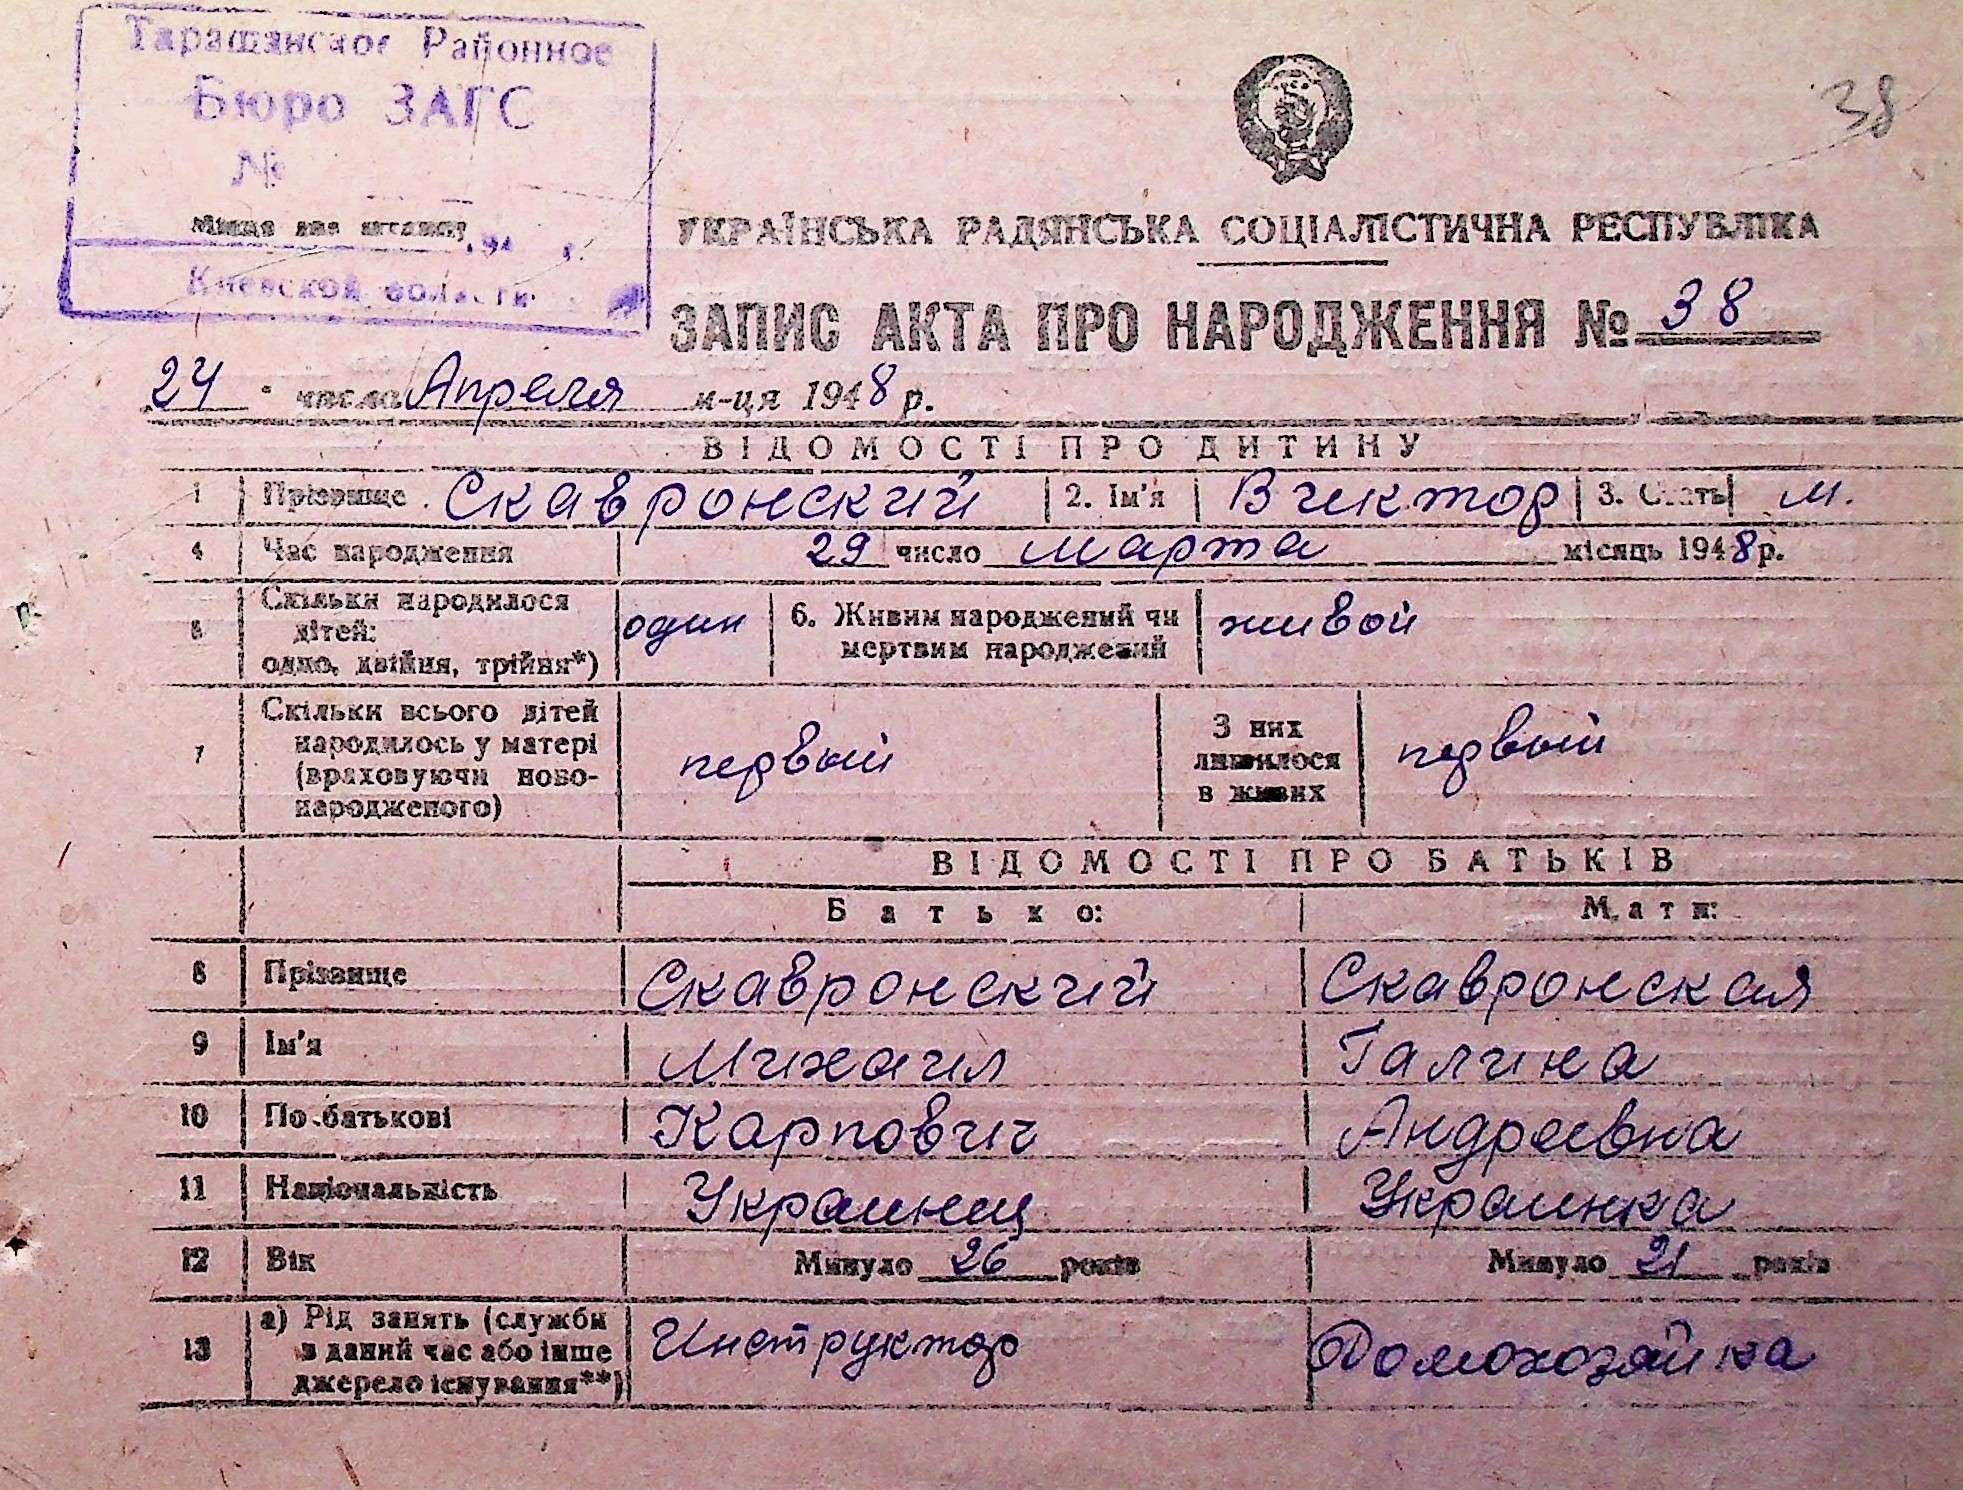 Таращанское Районное
Бюро ЗАГС
№
Місце для штампу
194 г.
Киевской области
38
УКРАЇНСЬКА РАДЯНСЬКА СОЦІАЛІСТИЧНА РЕСПУБЛІКА
ЗАПИС АКТА ПРО НАРОДЖЕННЯ № 38
24 числа Апреля м-ця 1948 р.
ВІДОМОСТІ ПРО ДИТИНУ
1 Прізвище Скавронский 2. Ім'я Виктор 3. Стать м.
4 Час народження 29 число марта місяць 1948 р.
5 Скільки народилося дітей: одно, двійня, трійня*) один 6. Живим народжений чи мертвим народжений живой
7 Скільки всього дітей народилось у матері (враховуючи ново-народженого) первый З них лишилося в живих первый
ВІДОМОСТІ ПРО БАТЬКІВ
Батько: Мати:
8 Прізвище Скавронский Скавронская
9 Ім'я Михаил Галина
10 По-батькові Карпович Андреевна
11 Національність Украинец Украинка
12 Вік Минуло 26 років Минуло 21 років
13 а) Рід занять (служби в даний час або інше джерело існування**) Инструктор Домохозяйка